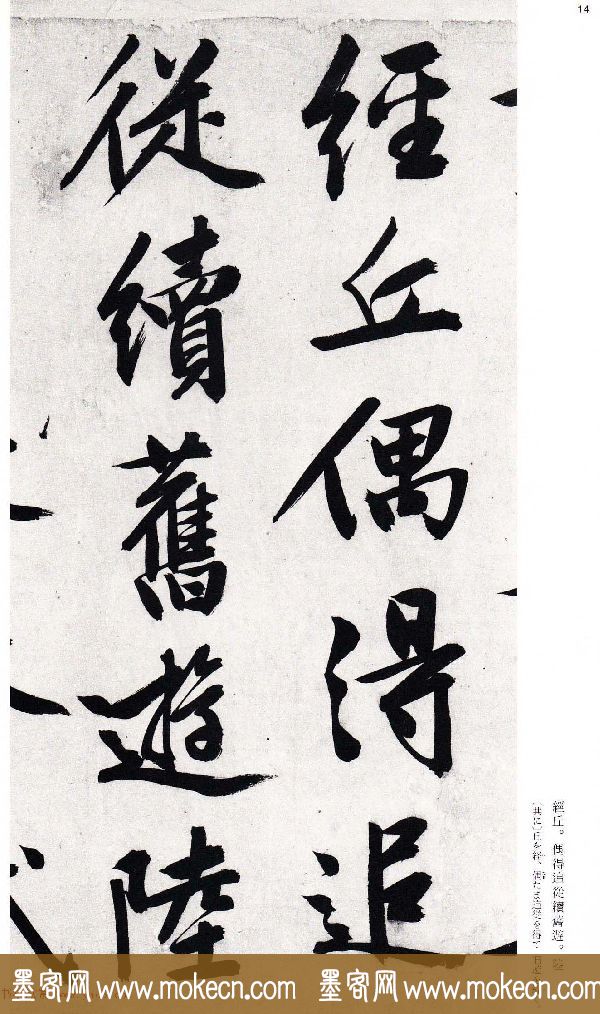 14
經丘偶得追
從續舊遊陸
經丘。偶得追從續舊遊。陸
墨客网 www.mokecn.com 墨客网 www.mokecn.com